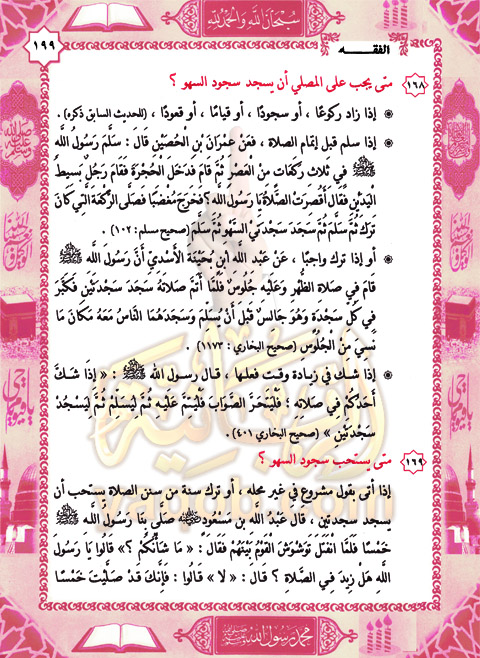 سُبْحَانَ اللَّهِ وَالْحَمْدُ لِلَّهِ
١٩٩
الفقـــه
١٦٨ متى يجب على المصلي أن يسجد سجود السهو ؟
إذا زاد ركوعًا ، أو سجودًا ، أو قيامًا ، أو قعودًا ، (للحديث السابق ذكره) .
إذا سلم قبل إتمام الصلاة ، فعَنْ عمْرَانَ بْنِ الْحُصَيْنِ قَالَ : سَلَّمَ رَسُولُ اللَّهِ
ﷺ فِي ثَلَاثِ رَكَعَاتٍ مِنْ الْعَصْرِ ثُمَّ قَامَ فَدَخَلَ الْحُجْرَةَ فَقَامَ رَجُلٌ بَسِيطُ
الْيَدَيْنِ فَقَالَ أَقُصِرَتْ الصَّلَاةُ يَا رَسُولَ اللَّه ؟ فَخَرَجَ مُغْضَبًا فَصَلَّى الرَّكْعَةَ الَّتِي كَانَ
تَرَكَ ثُمَّ سَلَّمَ ثُمَّ سَجَدَ سَجْدَتَيْ السَّهْوِ ثُمَّ سَلَّمَ (صحيح مسلم : ١٠٢) .
أو إذا ترك واجبًا ، عَنْ عَبْدِ اللَّه ابْنِ بُحَيْنَةَ الْأَسْدِيِّ أَنَّ رَسُولَ اللَّه ﷺ
قَامَ فِي صَلَاةِ الظُّهْرِ وَعَلَيْهِ جُلُوسٌ فَلَمَّا أَتَمَّ صَلَاتَهُ سَجَدَ سَجْدَتَيْنِ فَكَبَّرَ
فِي كُلِّ سَجْدَةٍ وَهُوَ جَالِسٌ قَبْلَ أَنْ يُسَلِّمَ وَسَجَدَهُمَا النَّاسُ مَعَهُ مَكَانَ مَا
نَسِيَ مِنْ الْجُلُوسِ (صحيح البخاري : ١١٧٣) .
إذا شك في زيادة وقت فعلها ، قال رسول الله ﷺ : « إِذَا شَكَّ
أَحَدُكُمْ فِي صَلَاتِهِ ؛ فَلْيَتَحَرَّ الصَّوَابَ فَلْيُتِمَّ عَلَيْهِ ثُمَّ لِيُسَلِّمْ ثُمَّ لِيَسْجُدْ
سَجْدَتَيْنِ » (صحيح البخاري ٤٠١) .
١٦٩ متى يستحب سجود السهو ؟
إذا أتى بقول مشروع في غير محله ، أو ترك سنة من سنن الصلاة يستحب أن
يسجد سجدتين ، قال عَبْدُ اللَّه بن مَسْعُودٍ صَلَّى بِنَا رَسُولُ اللَّهِ ﷺ
خَمْسًا فَلَمَّا انْفَتَلَ تَوَشْوَشَ الْقَوْمُ بَيْنَهُمْ فَقَالَ : « مَا شَأْنُكُمْ ؟ » قَالُوا يَا رَسُولَ
اللَّهِ هَلْ زِيدَ فِي الصَّلَاةِ ؟ قَالَ : « لَا » قَالُوا : فَإِنَّكَ قَدْ صَلَّيْتَ خَمْسًا
محمد رسول الله ﷺ